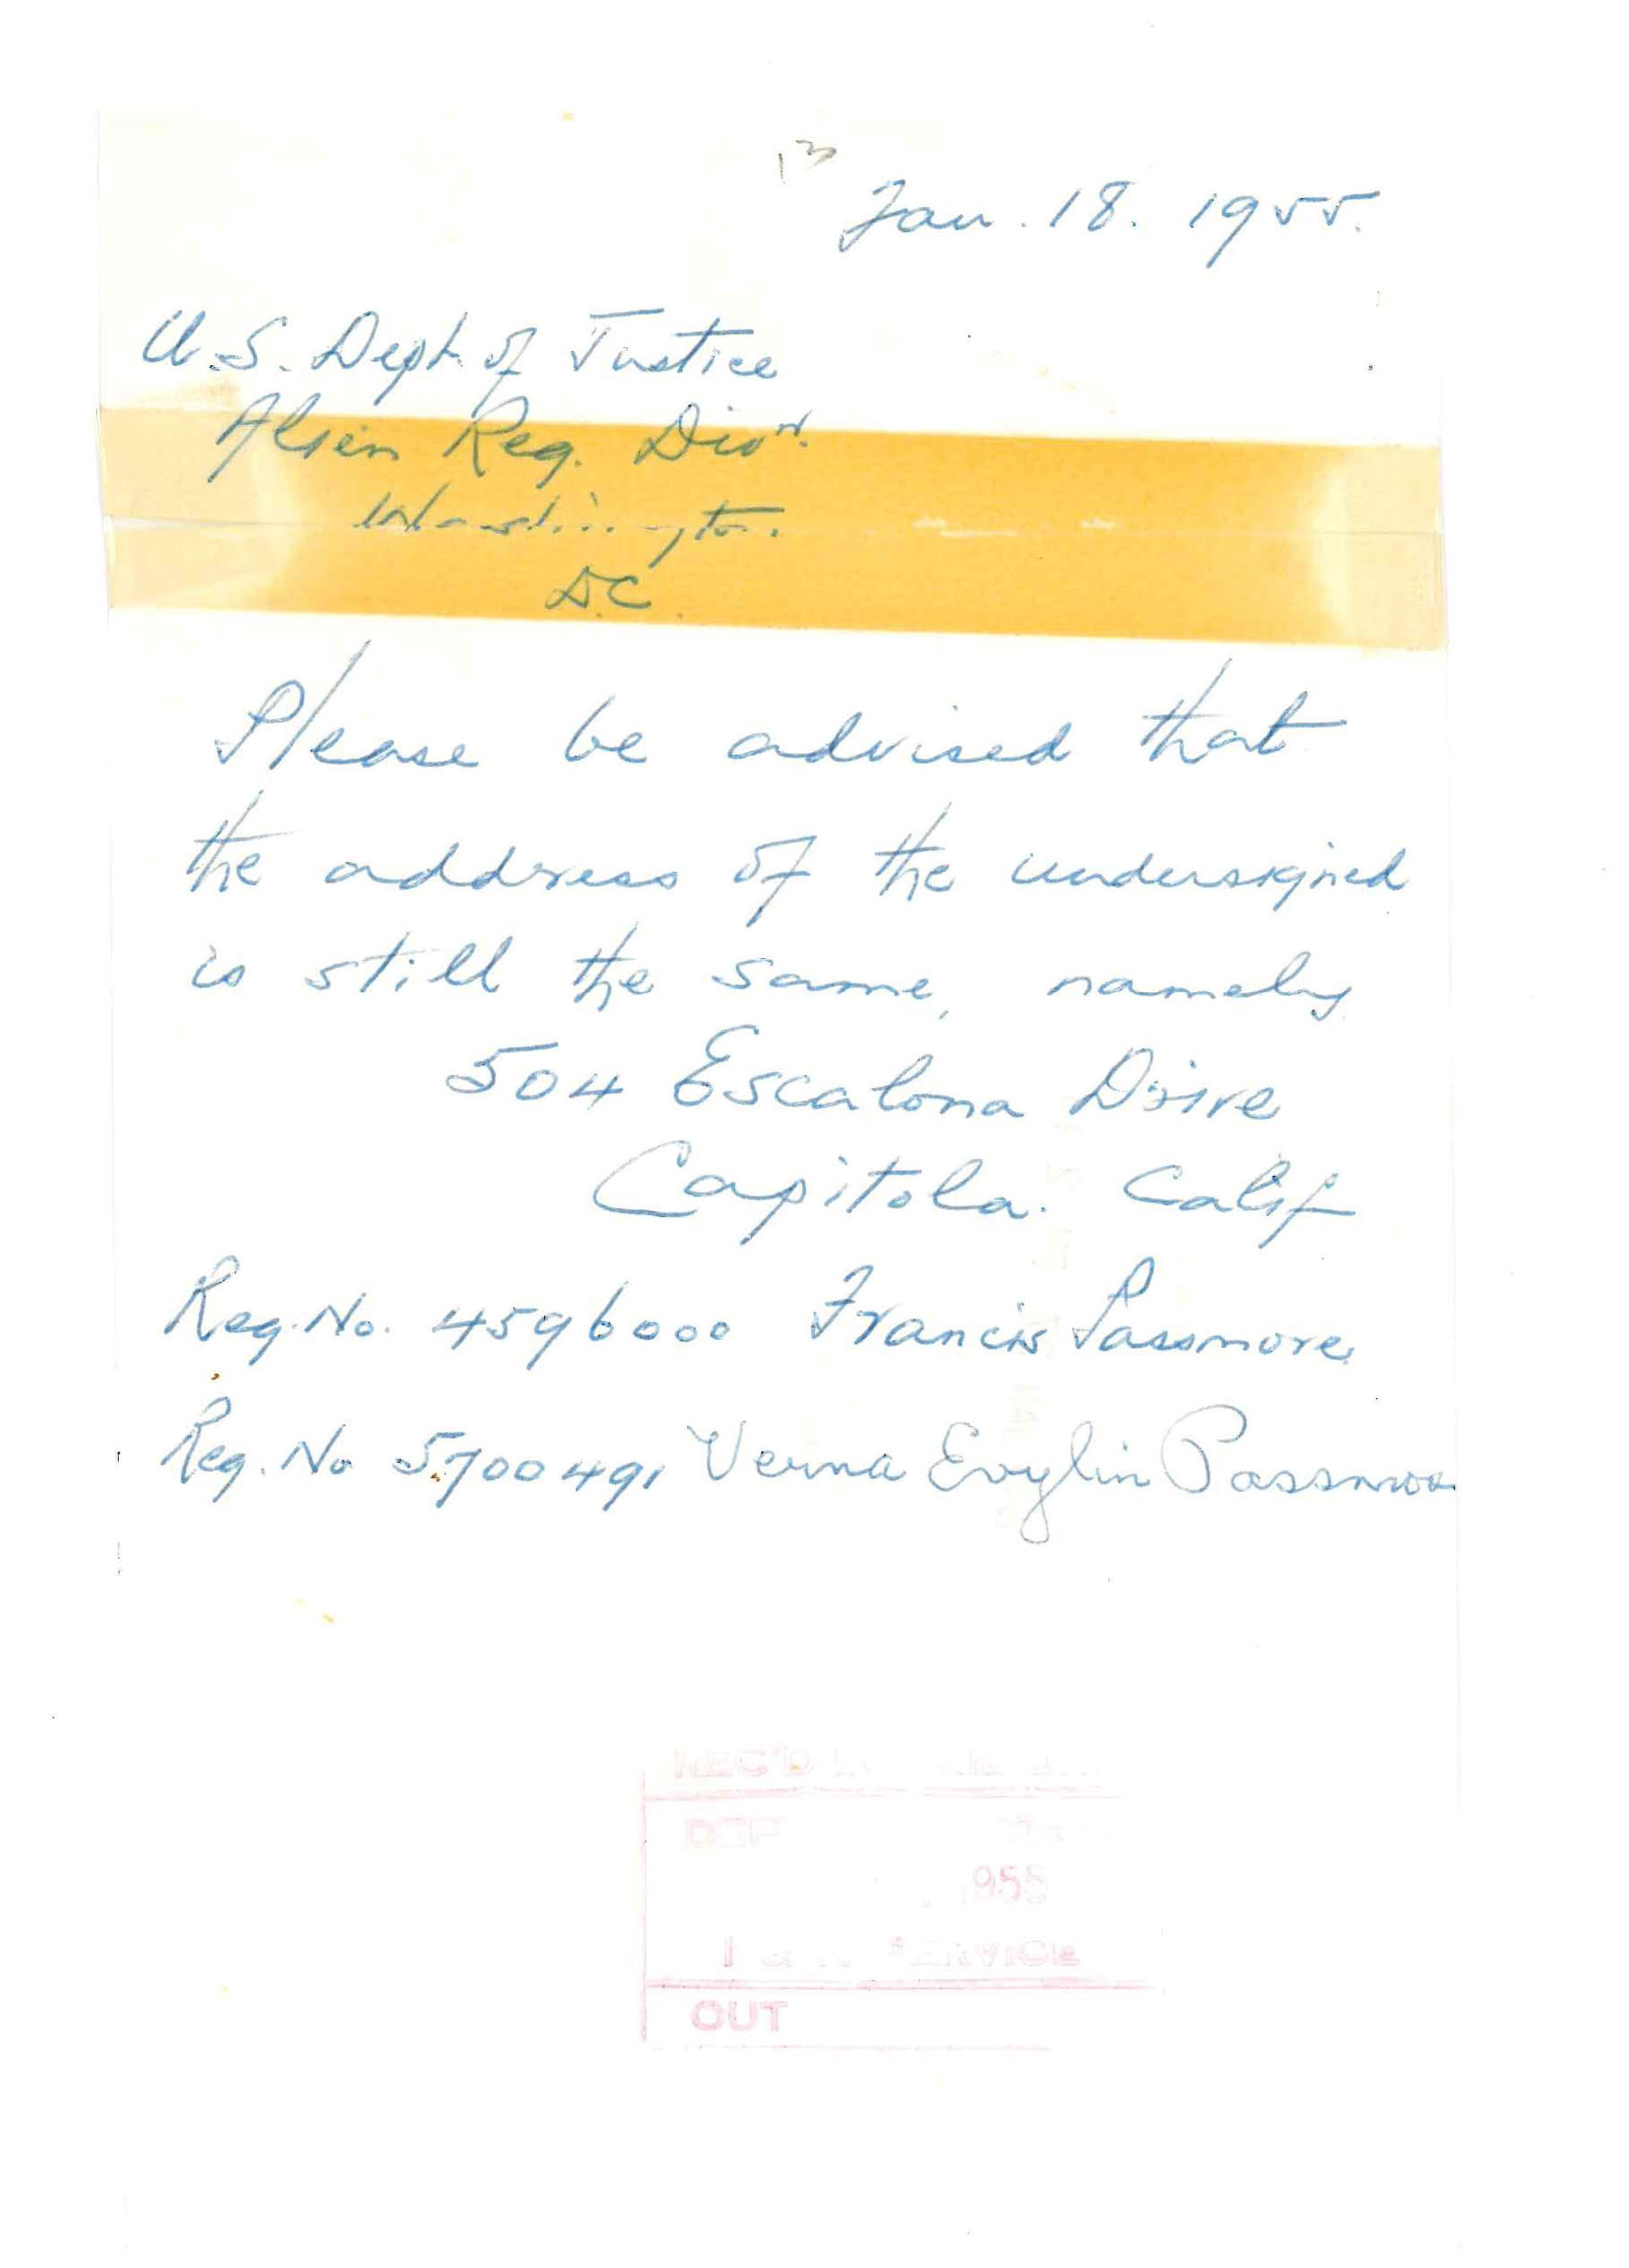 13
Jan. 18. 1955.
U.S. Dept. of Justice
Alien Reg. Divn.
Washington.
D.C.
Please be advised that
the address of the undersigned
is still the same, namely
504 Escalona Drive
Capitola. Calif
Reg. No. 4596000 Francis Passmore
Reg. No 5700491 Verna Evylin
REC'D
955
I & N SERVICE
OUT